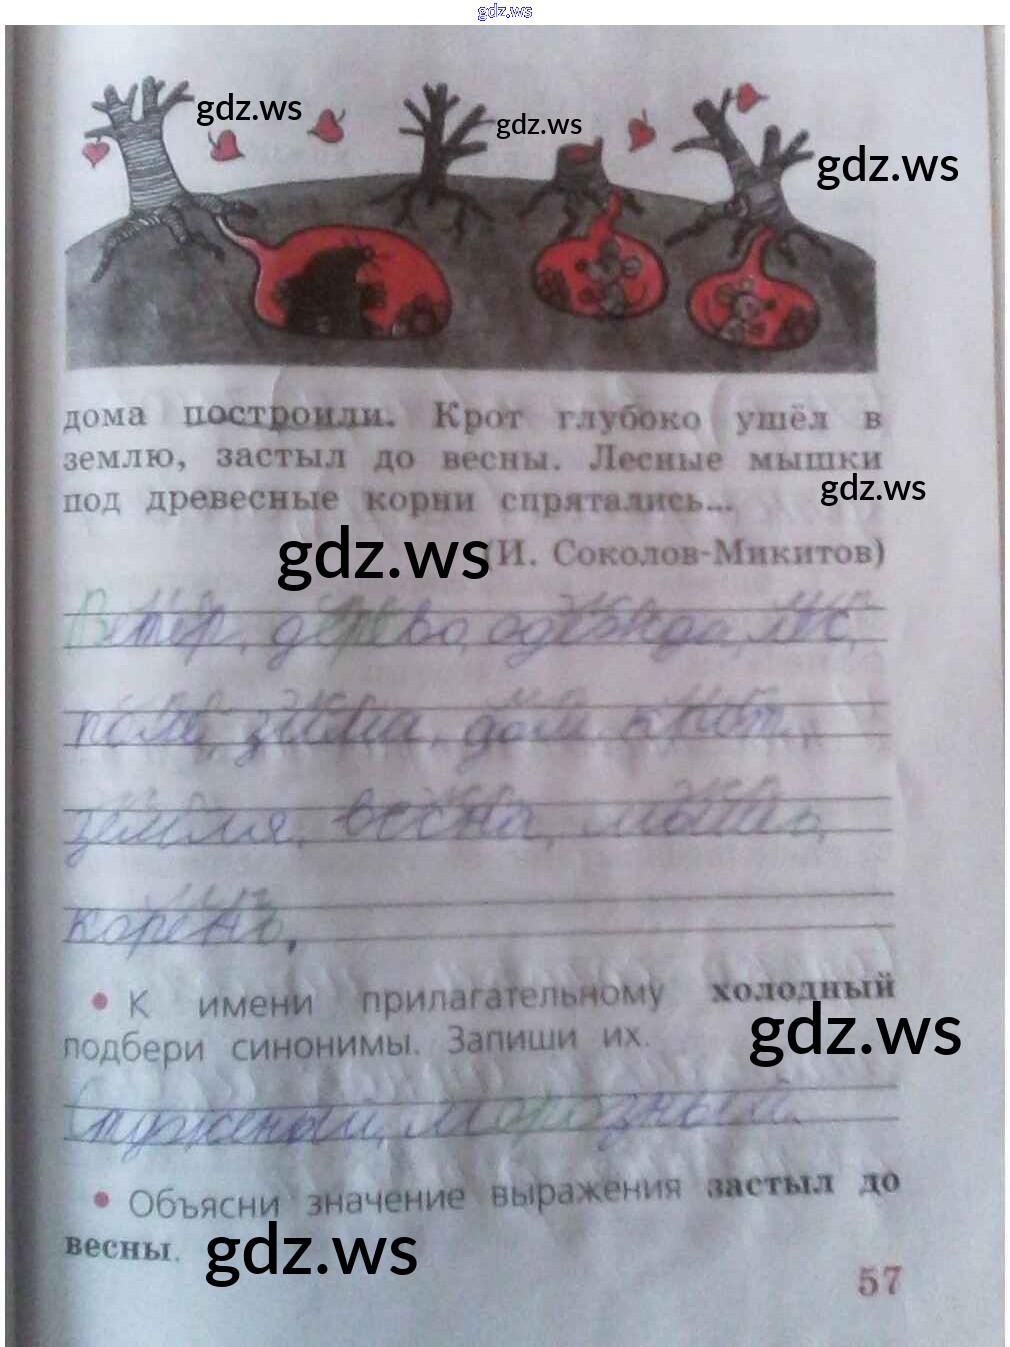 gdz.ws
gdz.ws
gdz.ws
gdz.ws
дома построили. Крот глубоко ушёл в
землю, застыл до весны. Лесные мышки
под древесные корни спрятались...
gdz.ws
gdz.ws
(И. Соколов-Микитов)
Ветер, дерево, одежда, лес,
поле, зима, дом, крот,
земля, весна, мышь,
корень,
• К имени прилагательному холодный
подбери синонимы. Запиши их.
gdz.ws
Стуженый, морозный.
• Объясни значение выражения застыл до
весны.
gdz.ws
57